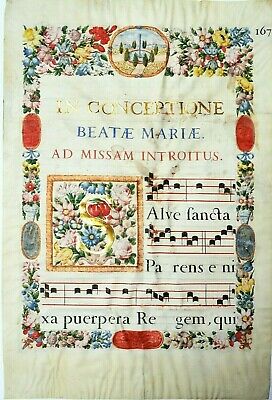 167
IN CONCEPTIONE
BEATÆ MARIÆ.
AD MISSAM INTROITUS.
SAlve sancta
Pa rens e ni
xa puerpera Re gem, qui